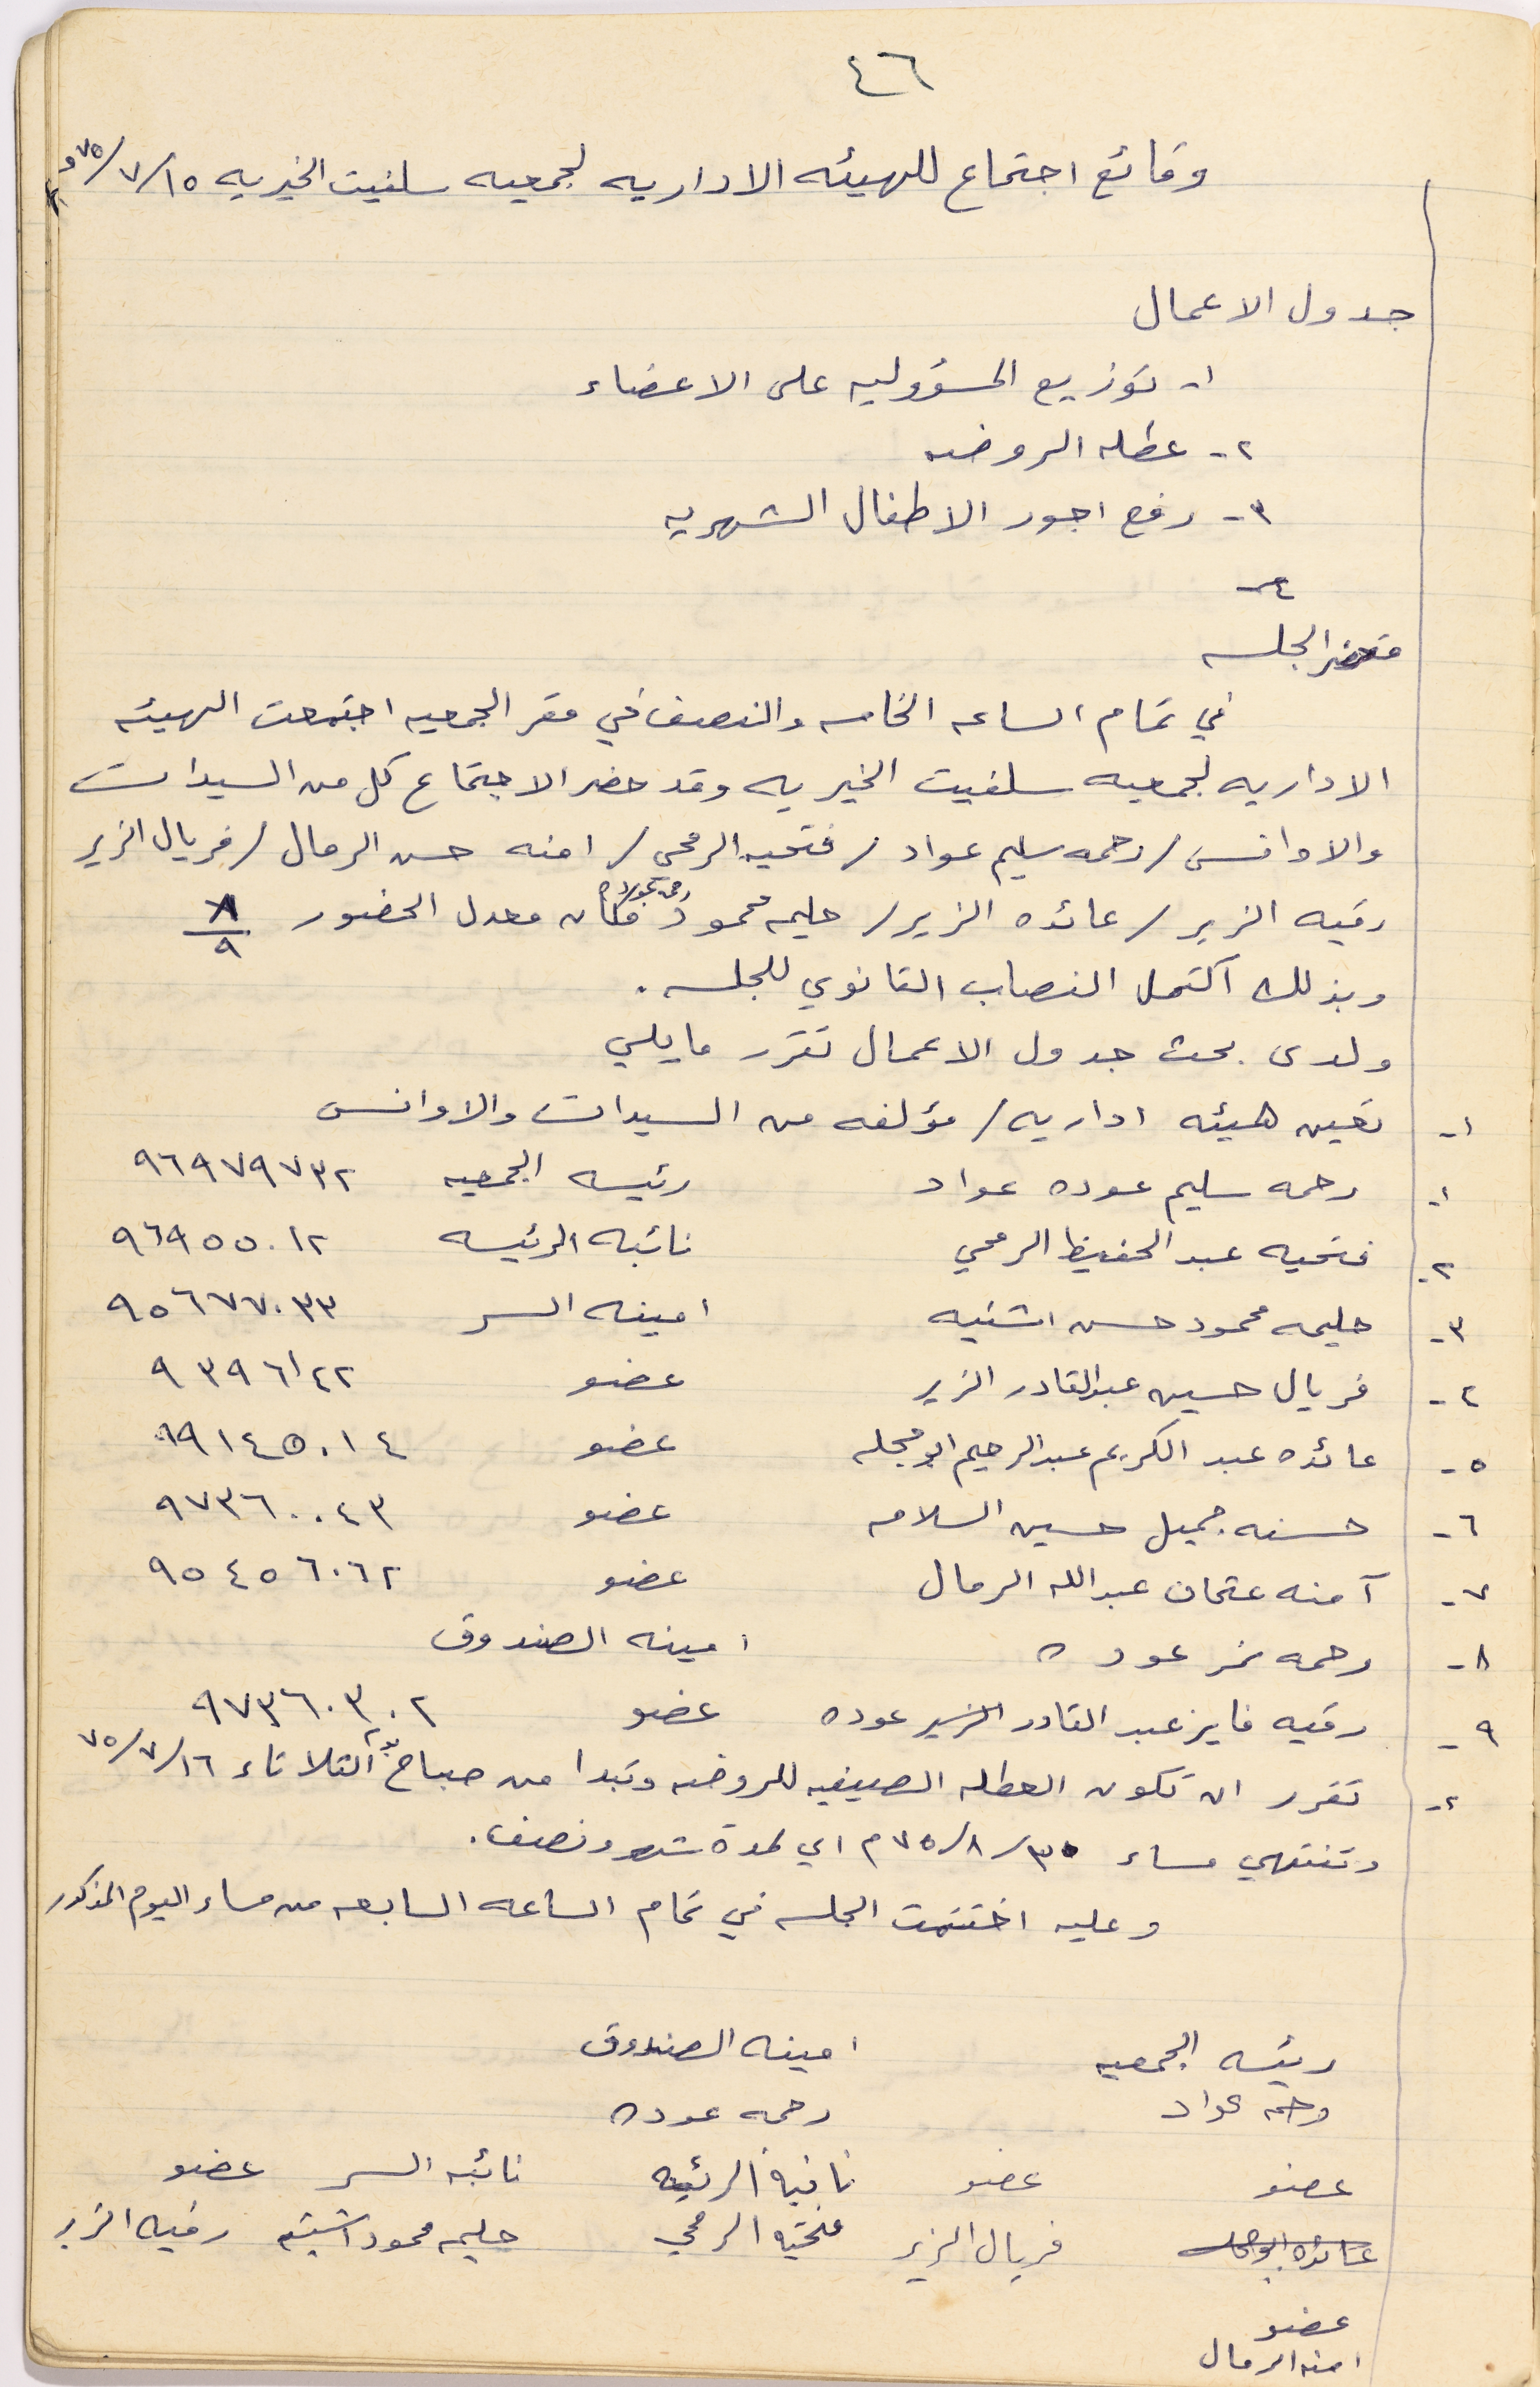 ٤٦
وقائع اجتماع للهيئه الاداريه لجمعيه سلفيت الخيريه ١٥/٧/٧٥م
جدول الاعمال
١- توزيع المسؤوليه على الاعضاء
٢- عطله الروضه
٣- رفع اجور الاطفال الشهريه
٤-
محضر الجلسه
في تمام الساعه الخامسه والنصف في مقر الجمعيه اجتمعت الهيئه
الاداريه لجمعيه سلفيت الخيريه وقد حضر الاجتماع كل من السيدات
والاوانس / رحمه سليم عواد / فتحيه الرمحي / امنه حسن الرمال / فريال الزير
رقيه الزير / عائده الزير / حليمه محمود فكان معدل الحضور ٨/٩
وبذلك اكتمل النصاب القانوي للجلسه.
ولدى بحث جدول الاعمال تقرر مايلي
١- تعين هيئه اداريه / مؤلفه من السيدات والاوانس
١- رحمه سليم عوده عواد رئيسه الجمعيه ٩٦٩٧٩٧٣٢
٢- فتحيه عبد الحفيظ الرمحي نائبه الرئيسه ٩٦٩٥٥٠١٢
٣- حليمه محمود حسن اشتيه امينه السر ٩٥٦٧٧٠٣٣
٤- فريال حسين عبدالقادر الزير عضو ٩٣٩٦١٤٢
٥- عائده عبد الكريم عبدالرحيم ابو حجله عضو ٩٩١٤٥٠١٤
٦- حسنه جميل حسين السلامه عضو ٩٧٣٦٠٠٤٣
٧- آمنه عثمان عبدالله الرمال عضو ٩٥٤٥٦٠٦٢
٨- رحمه نمر عوده امينه الصندوق
٩- رقيه فايز عبد القادر الزير عوده عضو ٩٧٣٦٠٣٠٢
٢- تقرر ان تكون العطله الصيفيه للروضه وتبدا من صباح يوم الثلاثاء ١٦/٧/٧٥
وتنتهي مساء ٣٠/٨/٧٥م اي لمدة شهر ونصف.
وعليه اختتمت الجلسه في تمام الساعه السابعه من مساء اليوم المذكور
رئيسه الجمعيه امينه الصندوق
رحمه عواد رحمه عوده
عضو عضو نائبة الرئيسه نائبه السر عضو
عائده ابوحجله فريال الزير فتحيه الرمحي حليمه محمود اشتيه رقيه الزير
عضو
امنه الرمال